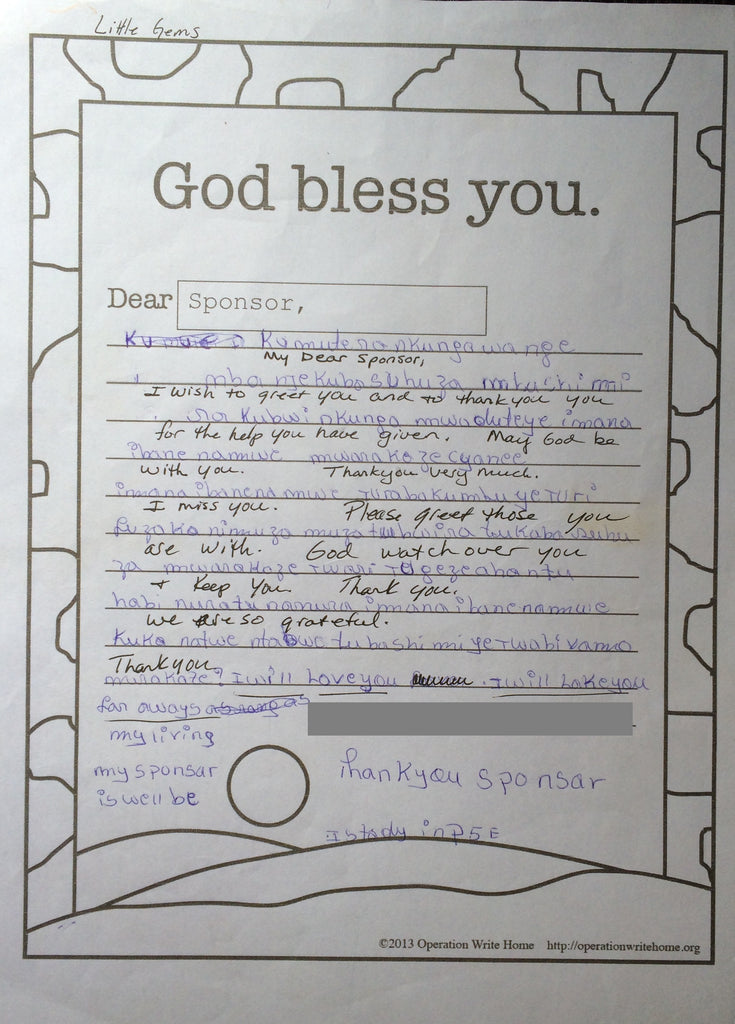 Little Gems
God bless you.
Dear Sponsor,
Kumutera nkunga wange
My Dear Sponsor,
mba njekubasuhuza mbashimi
I wish to greet you and to thank you you
ira kubwi nkunga mwaduteye imana
for the help you have given. May God be
ibane namwe mwarakoze cyanee
with you. Thankyou very much.
imana ibanena mwe turabakumbuye turi
I miss you. Please greet those you
tukaba suhu
are with. God watch over you
za mwarakoze twari
& keep you. Thank you.
habi imana ibane namwe
we are so grateful.
kuko natwe tubashimiye
Thankyou
murakaze? I will Love you . I will Lakeyou
far aways as
my living
my sponsar
is well be
Thankyou sponsar
I study in P5E
©2013 Operation Write Home http://operationwritehome.org